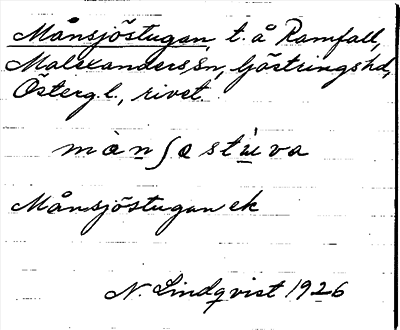 Månsjöstugan, t. å Ramfall,
Malexanders sn, Göstrings hd,
Österg. l., rivet.
mànʃøstùva
Månsjöstugan ek
N. Lindqvist 1926